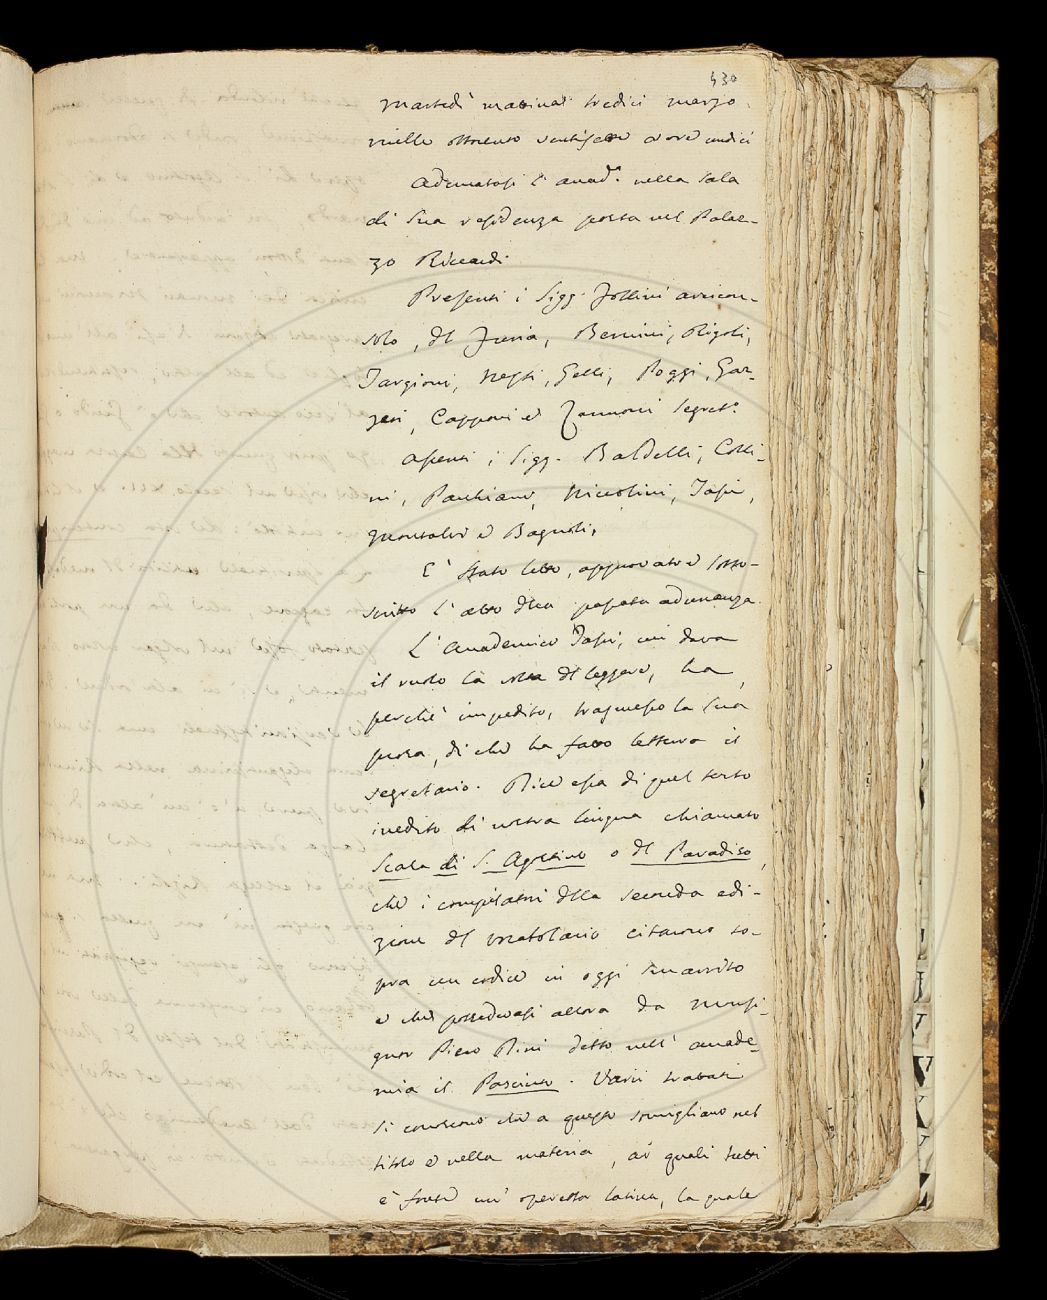 430
Martedì mattina tredici marzo
mille ottocento ventisette a ore undici
Adunatasi l'Accad.ª nella sala
di sua residenza posta nel Palaz-
zo Riccardi
Presenti i Sigg. Follini arcicon-
solo, del Furia, Bencini, Rigoli,
Targioni, Nesti, Gelli, Poggi, Gaz-
zeri, Capponi e Zannoni Segret.º
Assenti i Sigg. Baldelli, Colli-
ni, Niccolini, Tassi,
e Bagnoli,
E' stato letto, approvato e sotto-
scritto l'atto della passata adunanza
L'Accademico Tassi, cui dava
il ruolo la volta del leggere, ha,
perchè impedito, trasmesso la sua
prosa, di che ha fatto lettura il
segretario. Dice essa di quel testo
inedito di nostra lingua chiamato
Scala di S. Agostino o del Paradiso,
che i compilatori della seconda edi-
zione del vocabolario citarono so-
pra un codice in oggi smarrito
e che possedevasi allora da Monsi-
gnor Piero Dini detto nell'accade-
mia il Pasciuto. Varii trattati
si conoscono che a questo somigliano nel
titolo e nella materia, ai quali tutti
è fonte un'operetta latina, la quale